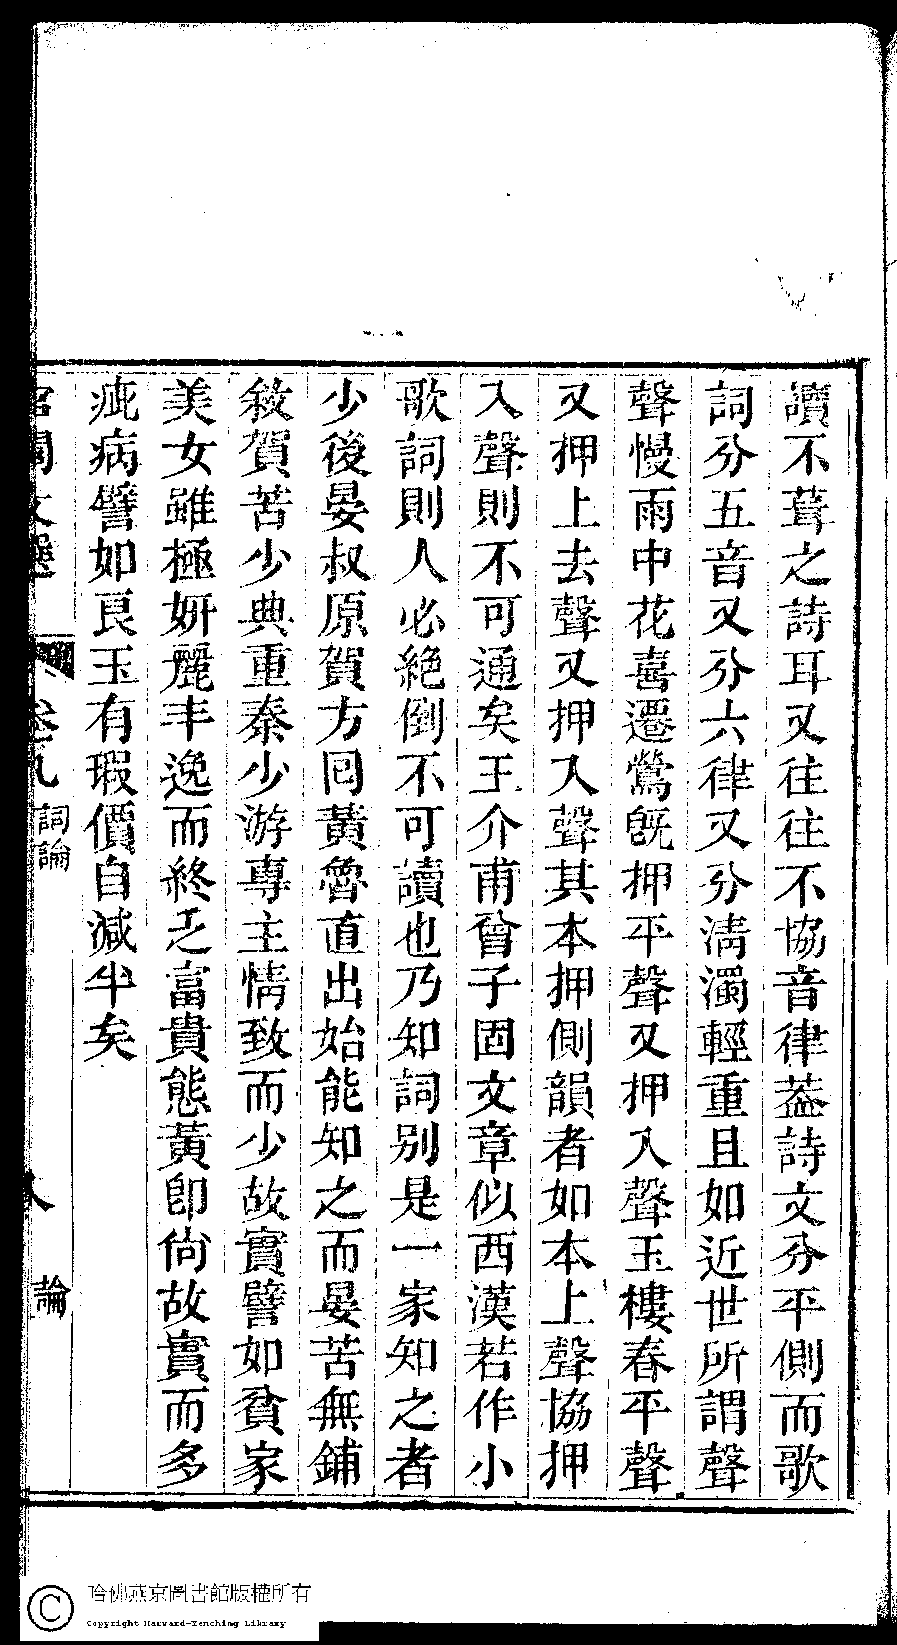 讀不葺之詩耳又往往不協音律葢詩文分平側而歌
詞分五音又分六律又分淸濁輕重且如近世所謂聲
聲慢雨中花喜遷鶯旣押平聲又押入聲玉樓春平聲
又押上去聲又押入聲其本押側韻者如本上聲協押
入聲則不可通矣王介甫曾子固文章似西漢若作小
歌詞則人必絶倒不可讀也乃知詞别是一家知之者
少後晏叔原賀方囘黃魯直出始能知之而晏苦無鋪
敘賀苦少典重秦少游專主情致而少故實譬如貧家
美女雖極妍麗丰逸而終乏富貴態黃卽尙故實而多
疵病譬如良玉有瑕價自減半矣
宮閨文選 卷九 詞論 論
哈佛燕京圖書館版權所有
Copyright Harvard-Yenching Library